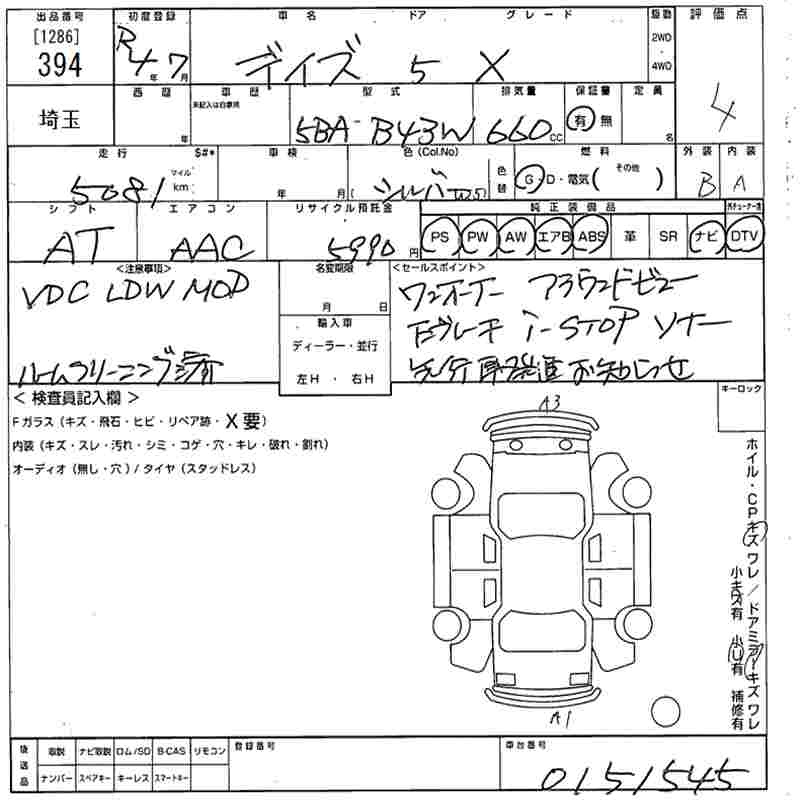 出品番号 初度登録 車名 ドア グレード 駆動 評価点
[1286] 2WD
394 R4年7月 デイズ 5 X 4WD 4
埼玉 西暦 車歴 型式 排気量 保証書 定員
未記入は自家用
年 5BA-B43W 660cc 有 無 名
走行 $#* 車検 色(Col.No) 燃料 外装 内装
マイル
5081 km 年 月( シルバー 色替 G・D・電気( その他 ) B A
シフト エアコン リサイクル預託金 純正装備品
AT AAC 5990円 PS PW AW エアB ABS 革 SR ナビ DTV
<注意事項> 名変期限 <セールスポイント>
VDC LDW MOD 月 日 ワンオーナー アラウンドビュー
輸入車 Eブレーキ i-STOP ソナー
ディーラー・並行
ルームクリーニング済 左H・右H お知らせ
< 検査員記入欄 > A3 キーロック
Fガラス(キズ・飛石・ヒビ・リペア跡・X要)
内装(キズ・スレ・汚れ・シミ・コゲ・穴・キレ・破れ・割れ)
オーディオ(無し・穴)/タイヤ(スタッドレス)
ホイル・CPキズ ワレ/ドアミラーキズ ワレ
小キズ有 小U有 補修有
A1
後送品 取説 ナビ取説 ロム/SD B-CAS リモコン 登録番号 車台番号
ナンバー スペアキー キーレス スマートキー 0151545